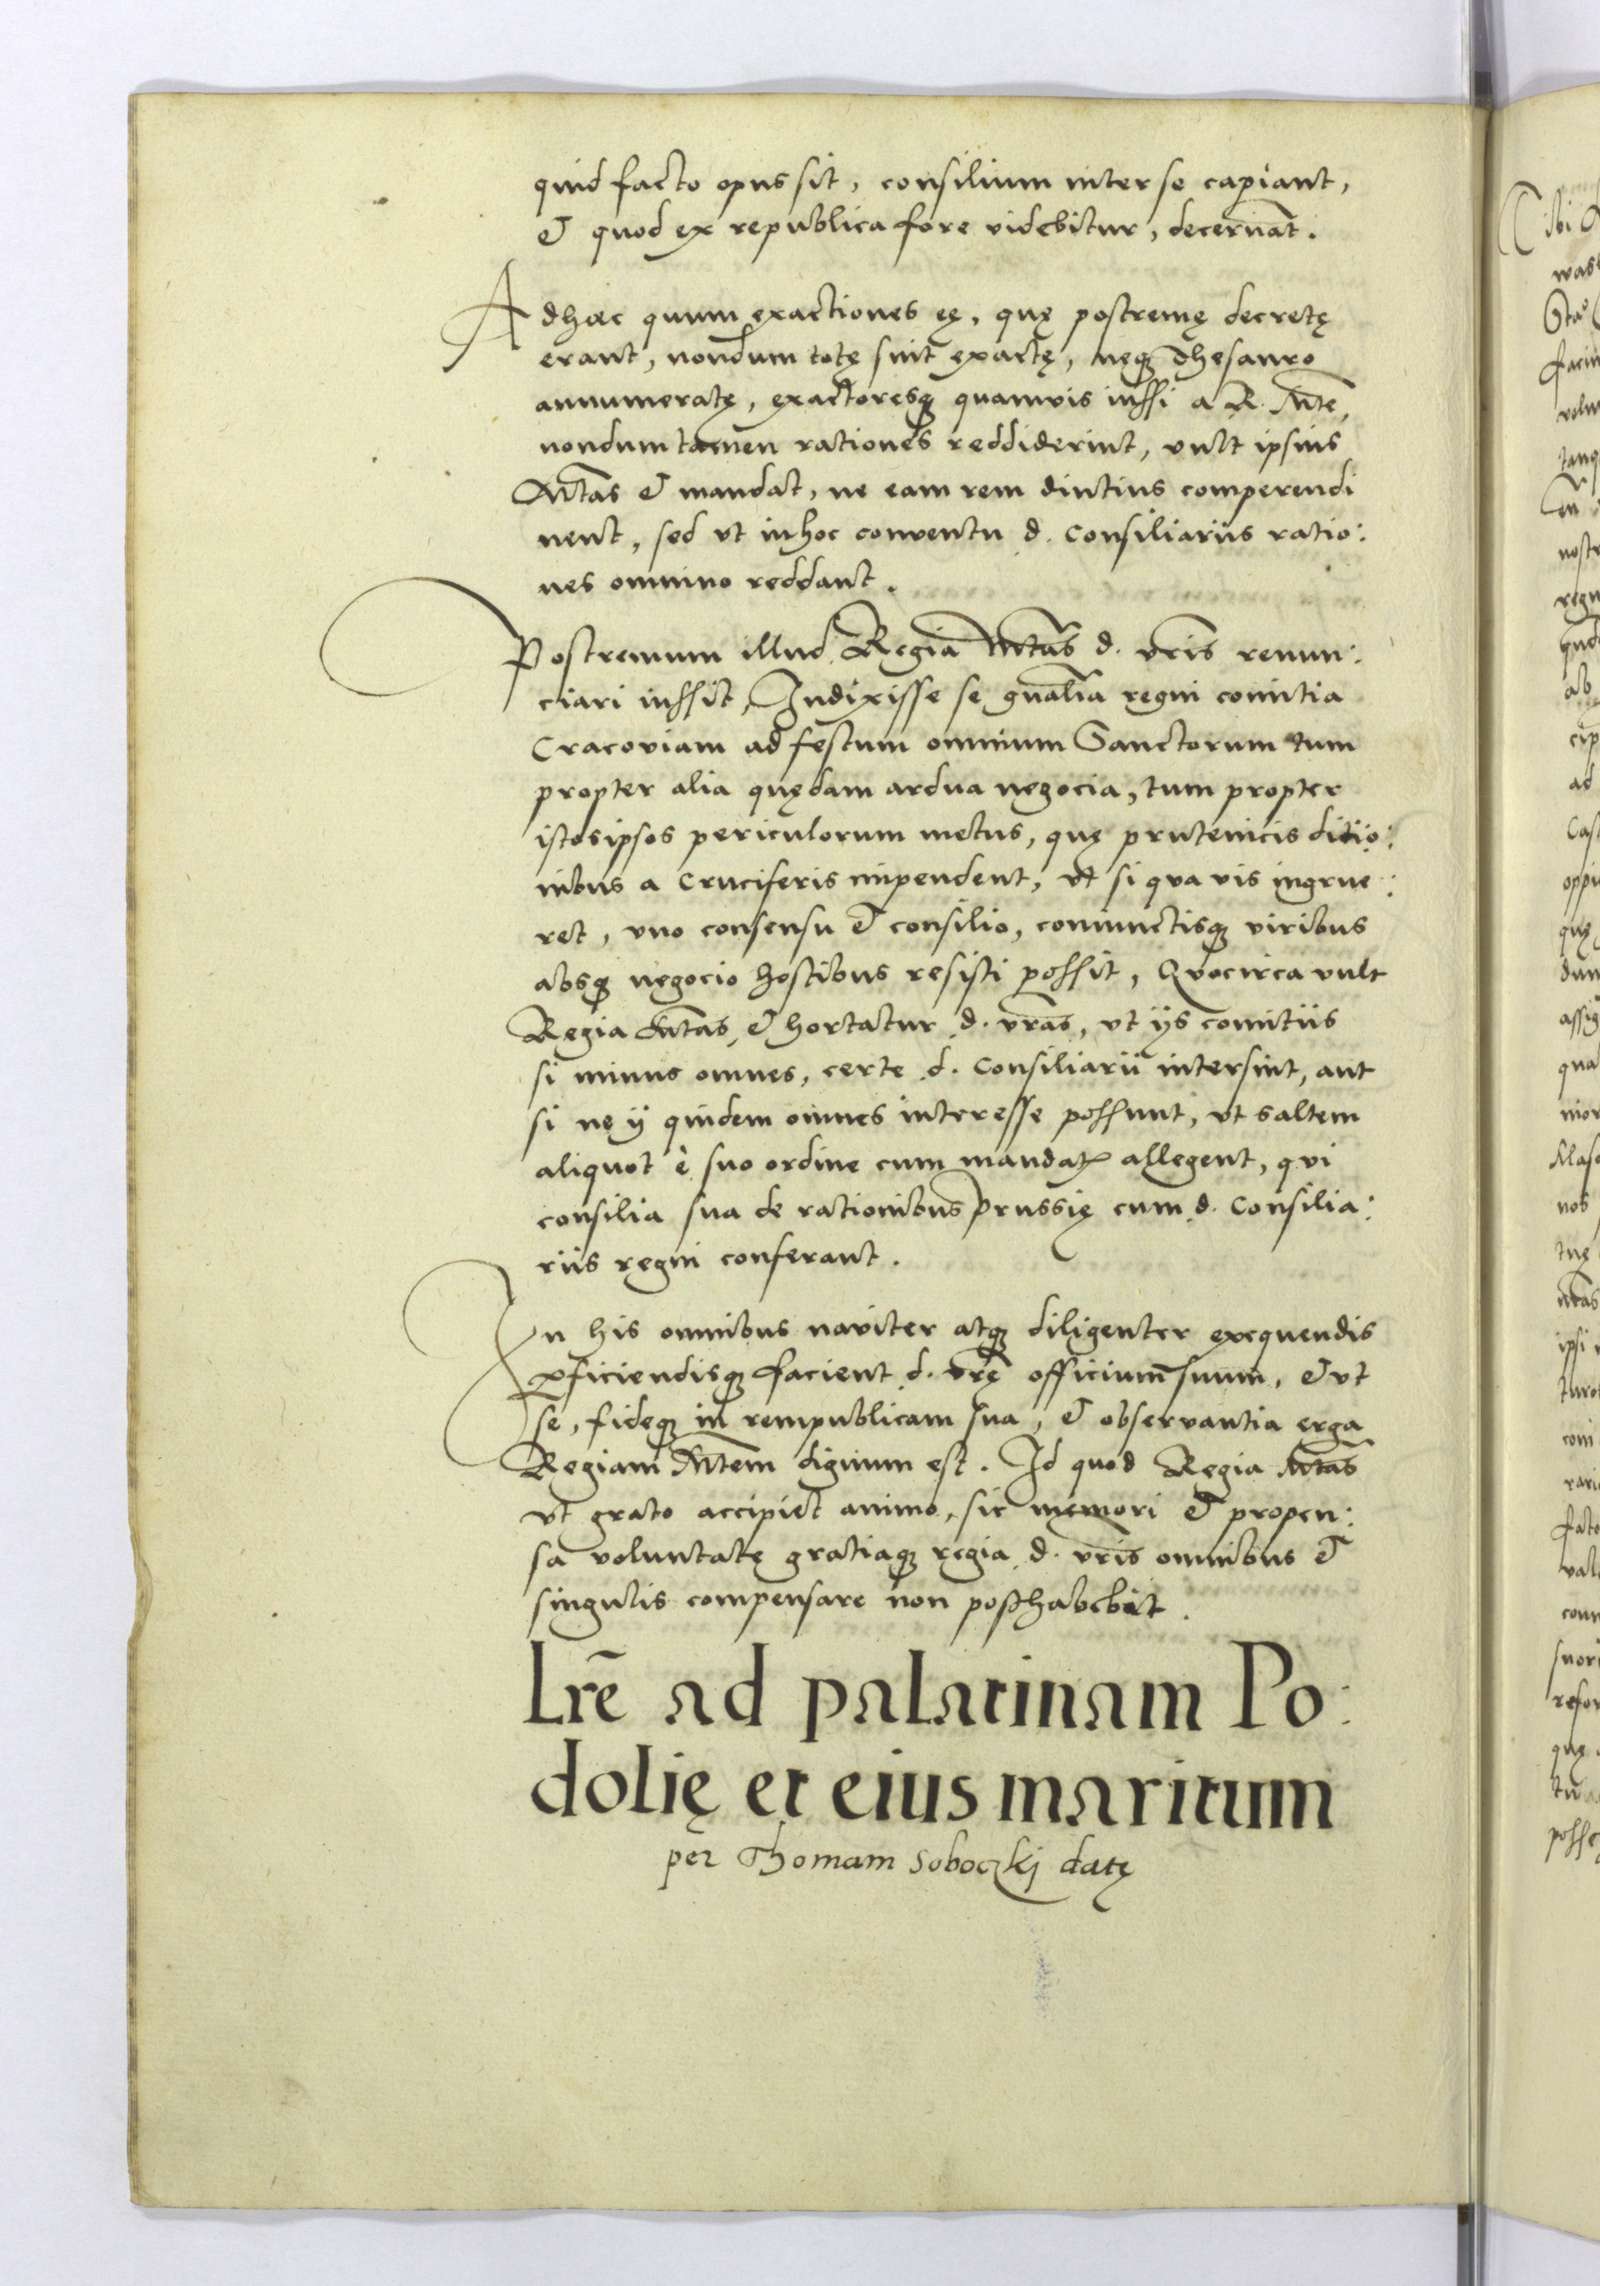 quid facto opus sit, consilium inter se capiant,
et quod ex republica fore videbitur, decernāt.
Adhæc quum exactiones eę, quę postremę decretę
erant, nondum totę sint exactę, neqꝫ thesauro
annumeratę, exactoresqꝫ quamvis iussi a R. Mte,
nondum tamen rationes reddiderint, vult ipsius
Mtas et mandat, ne eam rem diutius comperendi
nent, sed vt in hoc conventu d. Consiliariis ratio:
nes omnino reddant.
Postremum illud Regia Mtas d. vris renun:
ciari iussit, Indixisse se gnalia regni comitia
Cracoviam ad festum omnium Sanctorum tum
propter alia quędam ardua negocia, tum propter
istos ipsos periculorum metus, quę prutenicis ditio:
nibus a Cruciferis impendent, vt si qua vis ingrue:
ret, vno consensu et consilio, coniunctisqꝫ viribus
absqꝫ negocio hostibus resisti possit, Quocirca vult
Regia Mtas et hortatur d. vras, vt ijs comitiis
si minus omnes, certe d. Consiliarii intersint, aut
si ne ij quidem omnes interesse possunt, vt saltem
aliquot è suo ordine cum mandatꝭ allegent, qui
consilia sua de rationibus Prussię cum d. Consilia:
riis regni conferant.
In his omnibus naviter atqꝫ diligenter exequendis
ꝑficiendisqꝫ facient d. vrę officium suum, et vt
se, fideqꝫ in rempublicam sua, et observantia erga
Regiam Mtem dignum est. Id quod Regia Mtas
vt grato accipiet animo, sic memori et propen:
sa voluntate gratiaqꝫ regia d. vris omnibus et
singulis compensare non posthabebit.
Lrē ad palatinam Po:
dolię et eius maritum
per Thomam Soboczkj datę